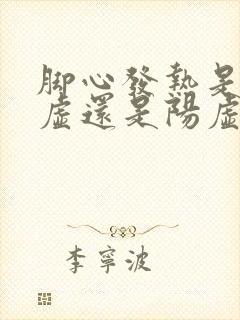 脚心發熱是
虛還是陽虛
李寧波